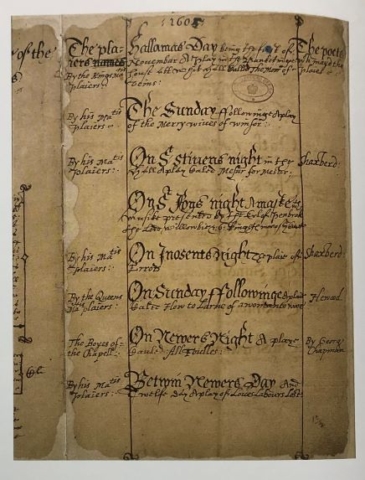 1605
of the
The plaiers names
By the Kings Ma
plaiers
Hallamas Day being the first of
Novembar A Play in the
house att called The Moor of
Venis
The poets
wch mayd the
plaies
By his Matis
plaiers
The Sunday ffollowinge A play
of the Merry wives of winsor
By his Matis
plaiers
On St Stivens night in the
Hall A play Caled Mesur for Mesur
Shaxberd
On St Jons night A maske
musike presented by the Erl of Penbrok
By his Matis
plaiers
On Inosents Night The plaie of
Errors
Shaxberd
By the Queens
Ma plaiers
On Sunday ffollowinge A plaie
Cald How to larne of a woman to wooe
Hewood
The Boyes of
the Chapell
On Newers Night A playe
cauled All Fouelles
By George
Chapman
By his Matis
plaiers
Betwin Newers Day And
Twelfe Day A play of Loves Labours Lost